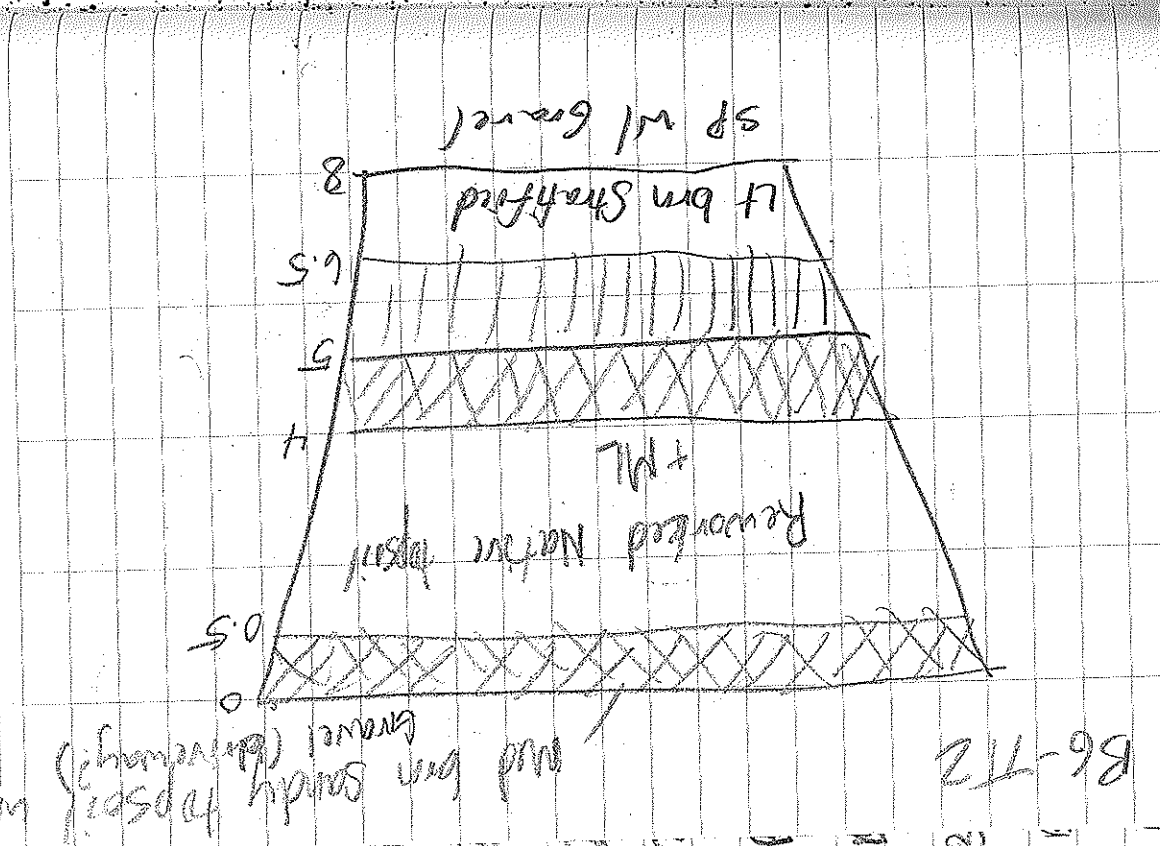 B6-TT2
Med brn sandy topsoil
Gravel (driveway?)
0
0.5
Reworked Native Topsoil
+ML
4
5
6.5
Lt brn Stratified
8
SP w/ Gravel